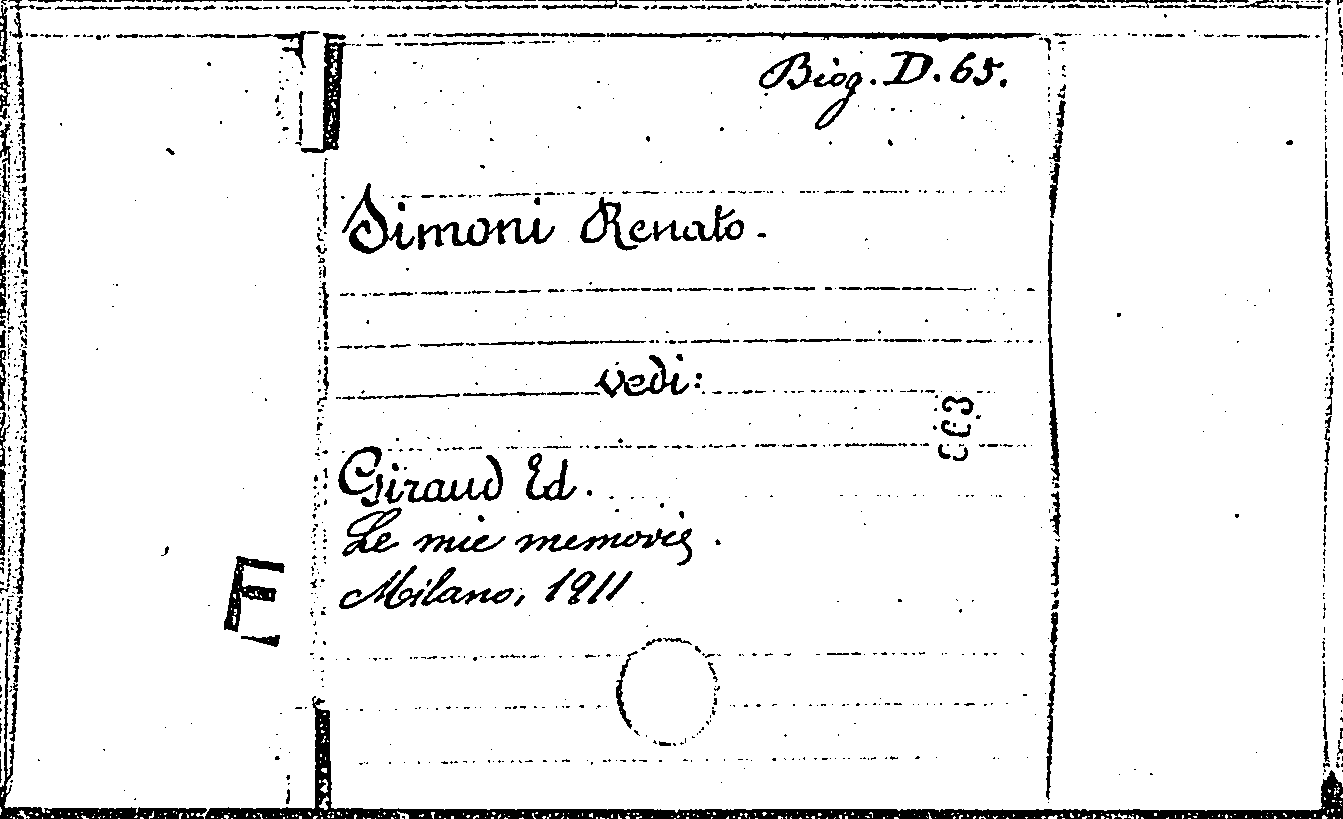 Biog. D. 65.
Simoni Renato.
vedi:
Giraud Ed.
Le mie memorie.
Milano, 1911
E